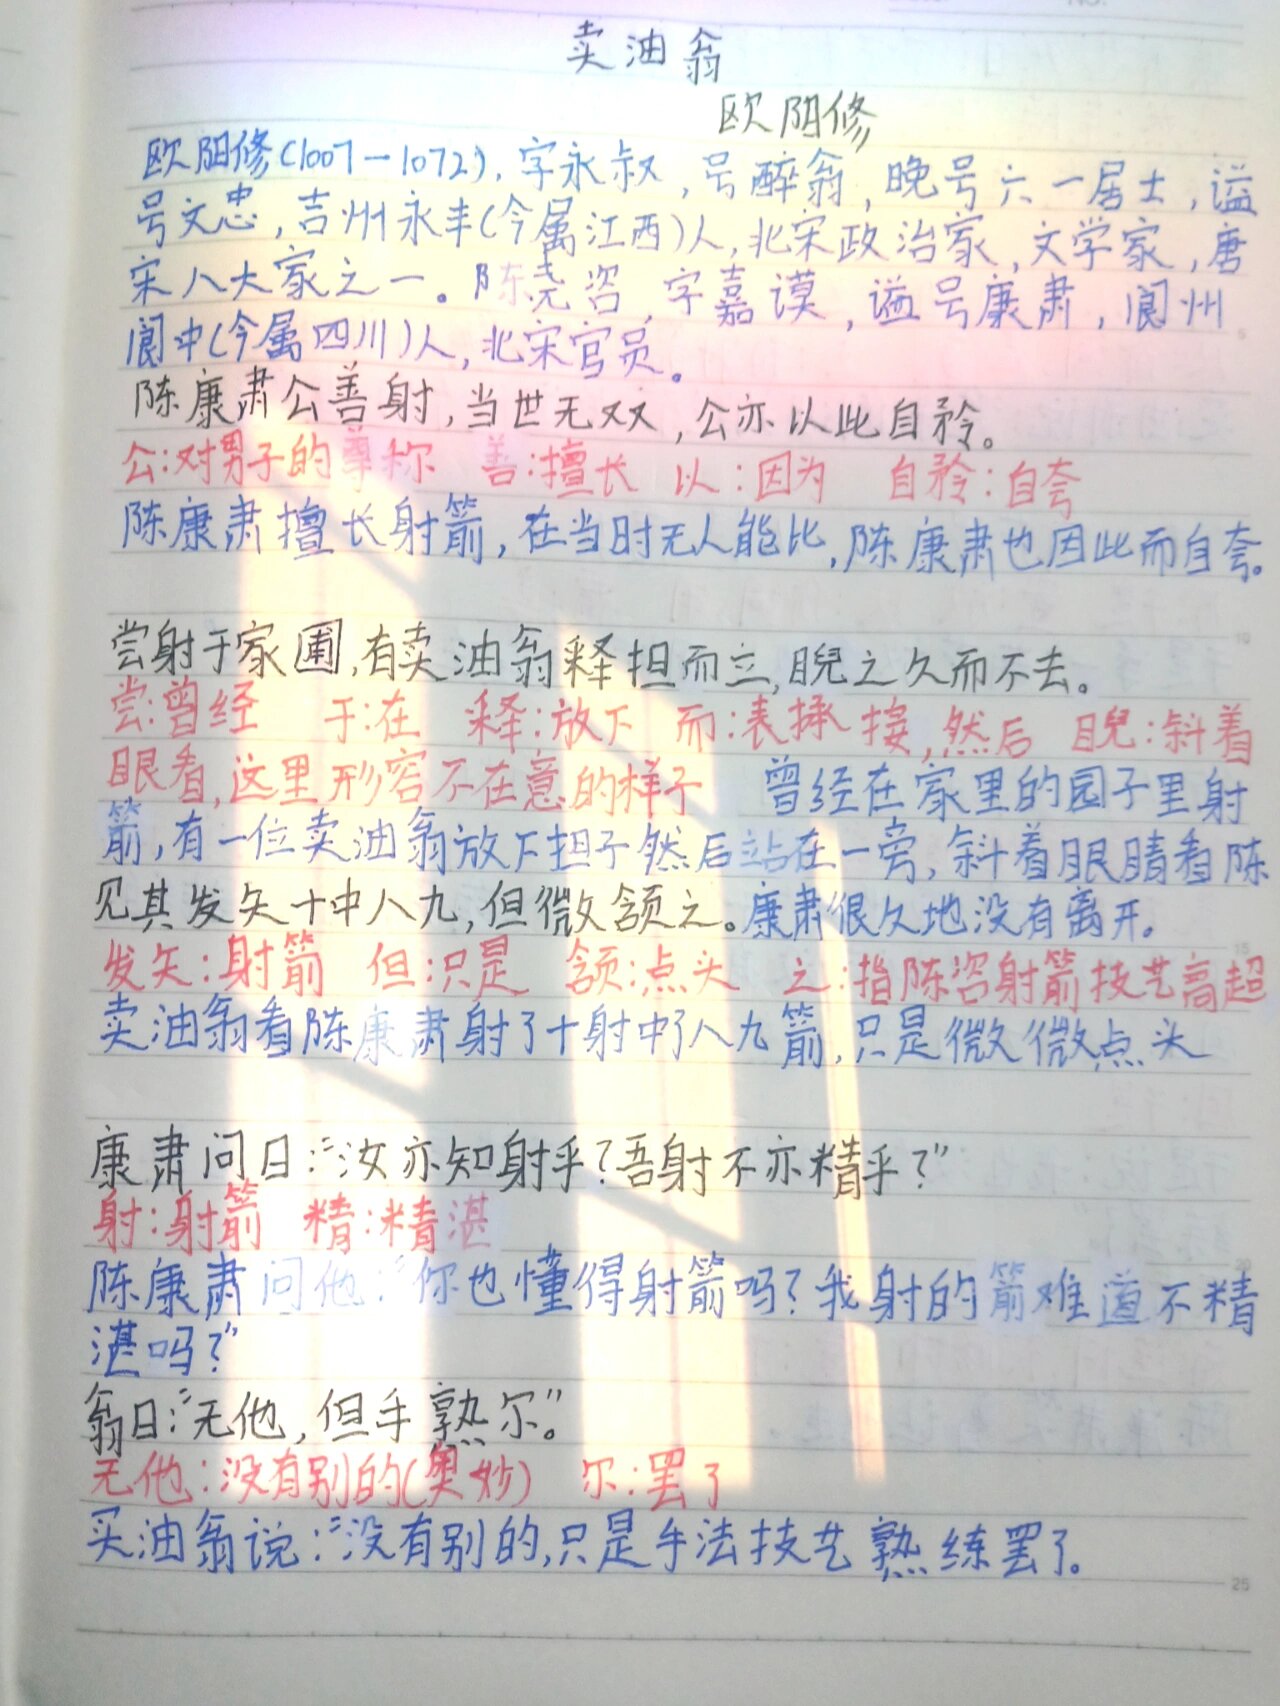 卖油翁
欧阳修
欧阳修(1007—1072),字永叔,号醉翁,晚号六一居士,谥
号文忠,吉州永丰(今属江西)人,北宋政治家,文学家,唐
宋八大家之一。陈尧咨,字嘉谟,谥号康肃,阆州
阆中(今属四川)人,北宋官员。
陈康肃公善射,当世无双,公亦以此自矜。
公:对男子的尊称 善:擅长 以:因为 自矜:自夸
陈康肃擅长射箭,在当时无人能比,陈康肃也因此而自夸。
尝射于家圃,有卖油翁释担而立,睨之久而不去。
尝:曾经 于:在 释:放下 而:表承接,然后 睨:斜着
眼看,这里形容不在意的样子 曾经在家里的园子里射
箭,有一位卖油翁放下担子然后站在一旁,斜着眼睛看陈
见其发矢十中八九,但微颔之。康肃很久地没有离开。
发矢:射箭 但:只是 颔:点头 之:指陈咨射箭技艺高超
卖油翁看陈康肃射了十射中了八九箭,只是微微点头
康肃问曰:“汝亦知射乎?吾射不亦精乎?”
射:射箭 精:精湛
陈康肃问他:“你也懂得射箭吗?我射的箭难道不精
湛吗?”
翁曰:“无他,但手熟尔。”
无他:没有别的(奥妙) 尔:罢了
买油翁说:“没有别的,只是手法技艺熟练罢了。
5
10
15
20
25